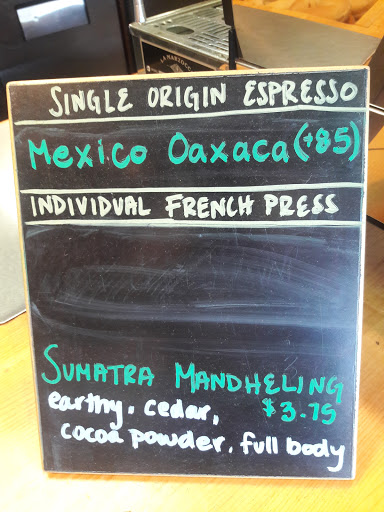 LA MARZOCCO
SINGLE ORIGIN ESPRESSO
Mexico Oaxaca (+85)
INDIVIDUAL FRENCH PRESS
SUMATRA MANDHELING
earthy, cedar, $3.75
cocoa powder, full body